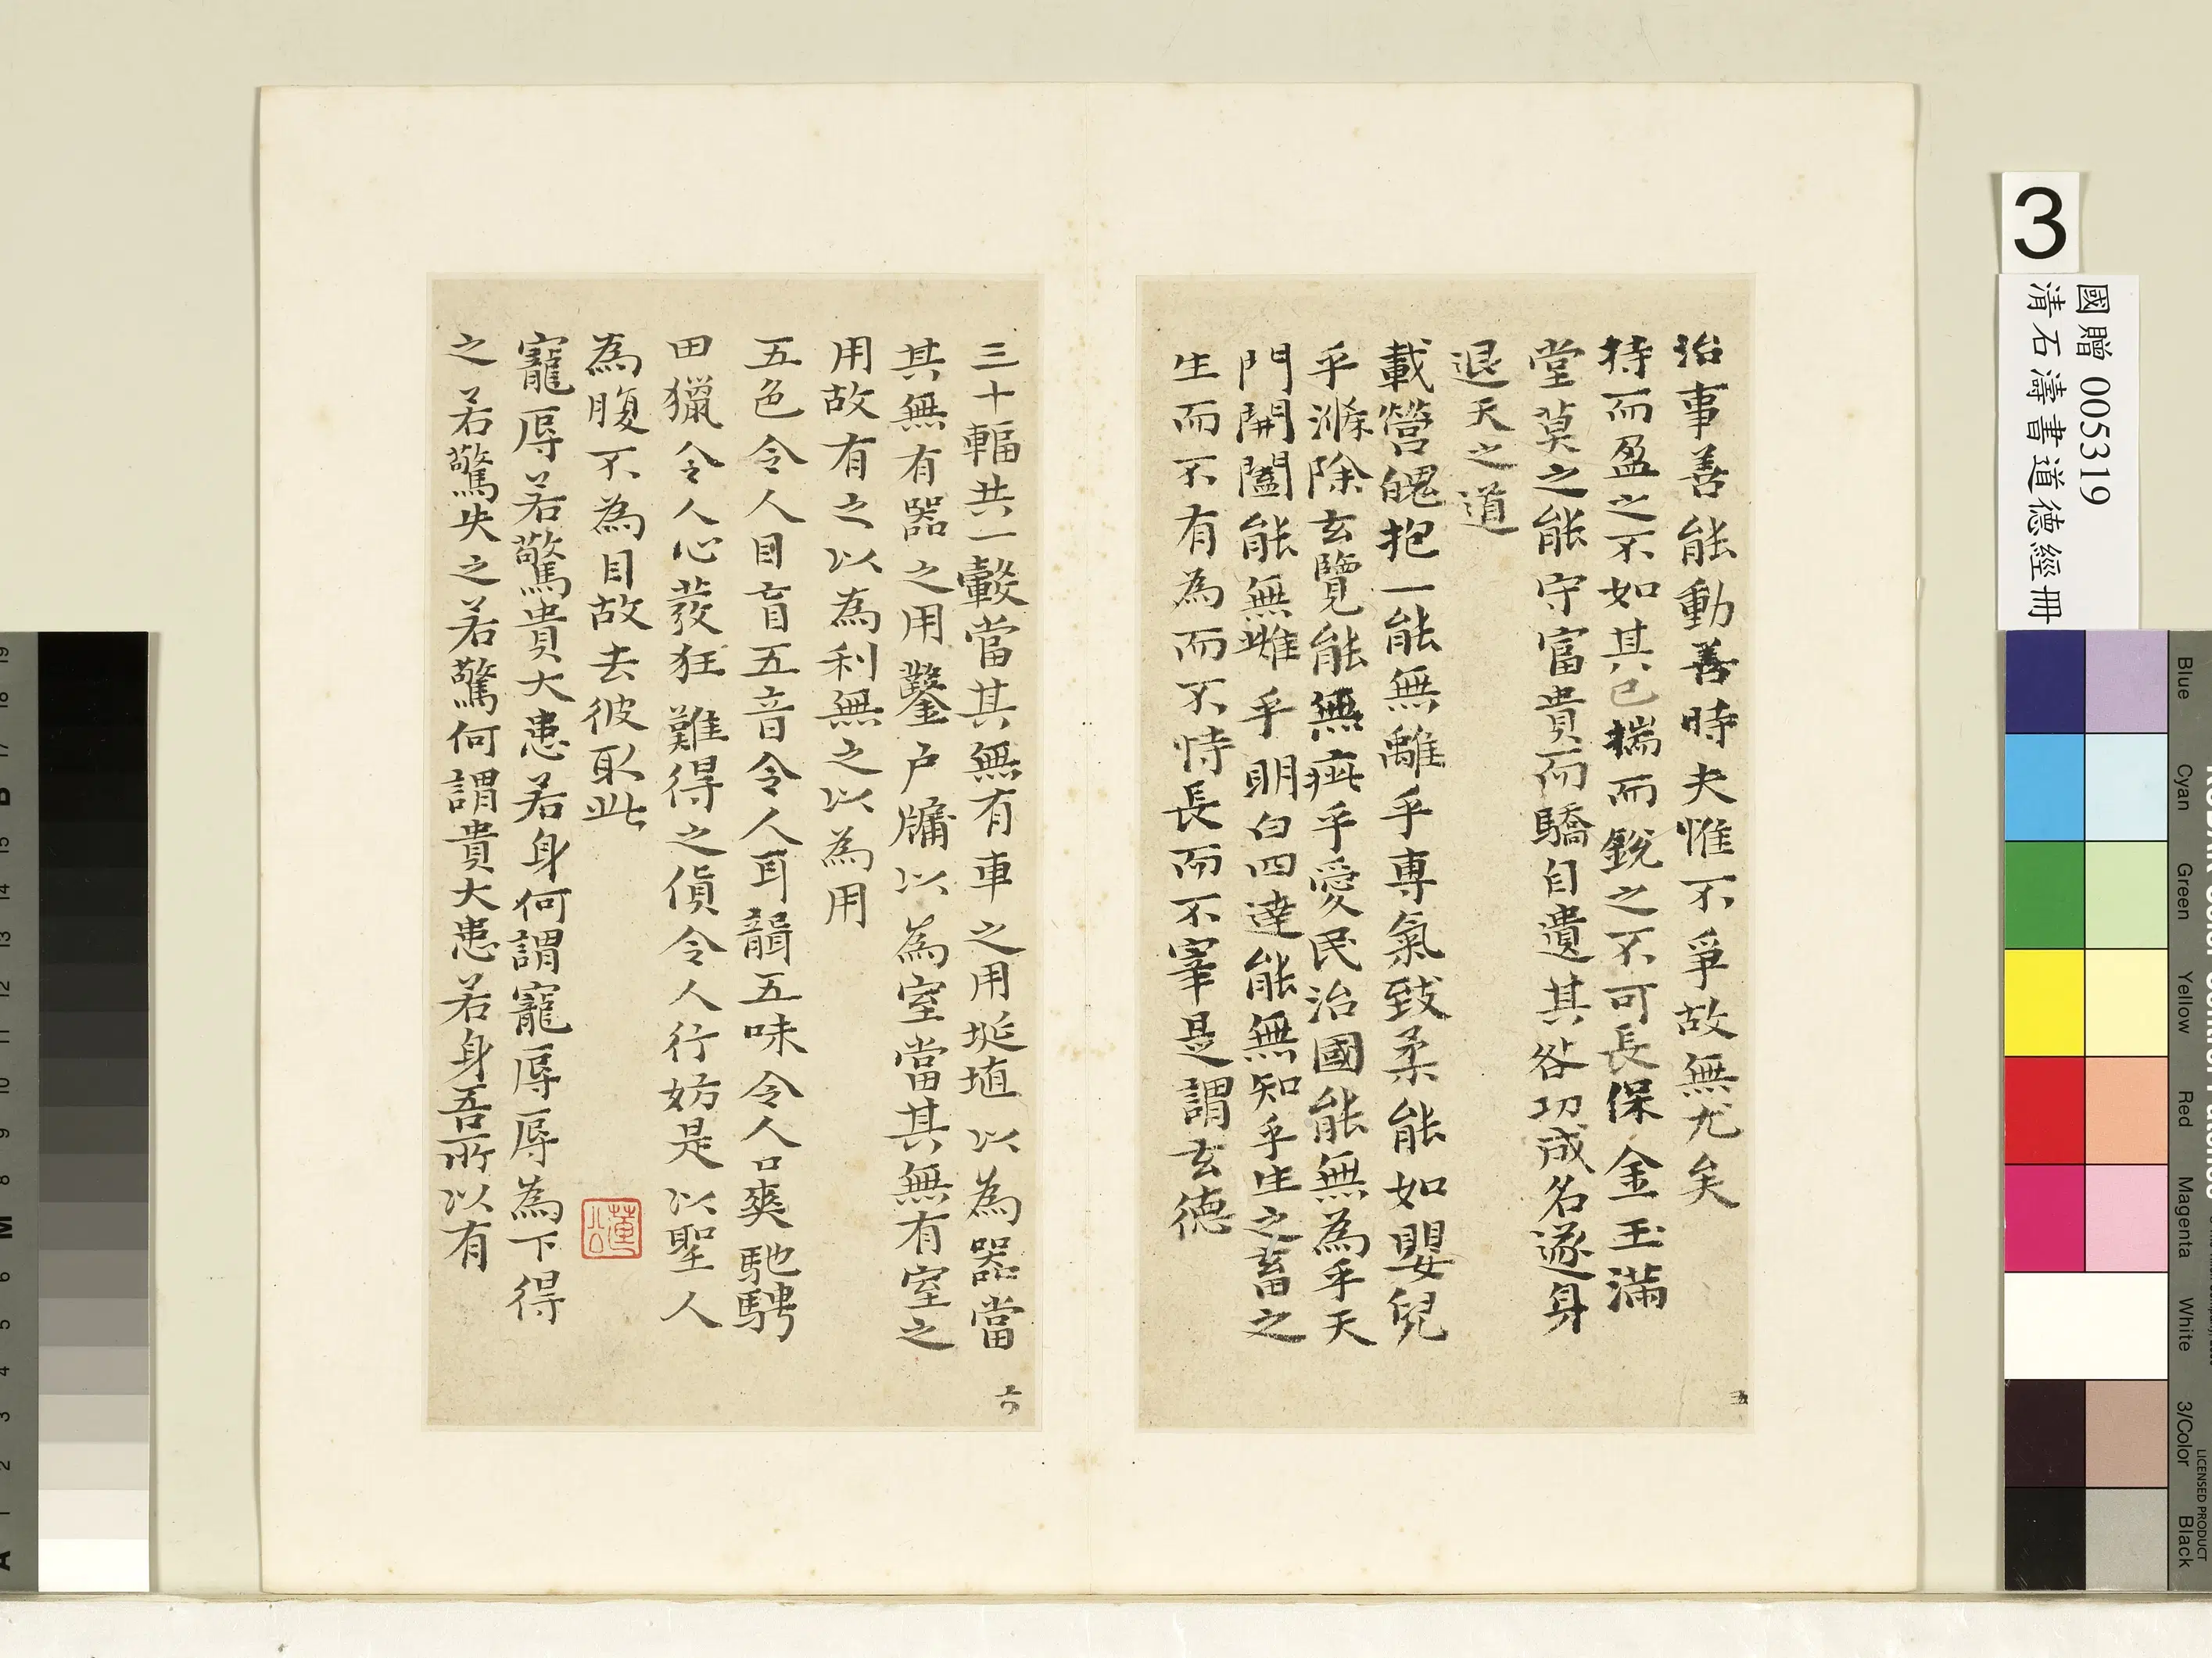 治事善能動善時夫惟不爭故無尤矣
持而盈之不如其已揣而銳之不可長保金玉滿
堂莫之能守富貴而驕自遺其咎功成名遂身
退天之道
載營魄抱一能無離乎專氣致柔能如嬰兒
乎滌除玄覽能無疵乎愛民治國能無為乎天
門開闔能無雌乎明白四達能無知乎生之畜之
生而不有為而不恃長而不宰是謂玄德
五
三十輻共一轂當其無有車之用埏埴以為器當
其無有器之用鑿戶牖以為室當其無有室之
用故有之以為利無之以為用
五色令人目盲五音令人耳聾五味令人口爽馳騁
田獵令人心發狂難得之貨令人行妨是以聖人
為腹不為目故去彼取此
寵辱若驚貴大患若身何謂寵辱辱為下得
之若驚失之若驚何謂貴大患若身吾所以有
3
國贈 005319
清石濤書道德經冊
Blue
Cyan
Green
Yellow
Red
Magenta
White
3/Color
Black
LICENSED PRODUCT
A 1 2 3 4 5 6 M 8 9 10 11 12 13 14 15 B 17 18 19